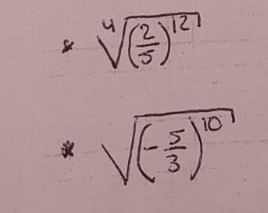 * \sqrt[4]{\left(\frac{2}{5}\right)^{12}}
* \sqrt{\left(-\frac{5}{3}\right)^{10}}